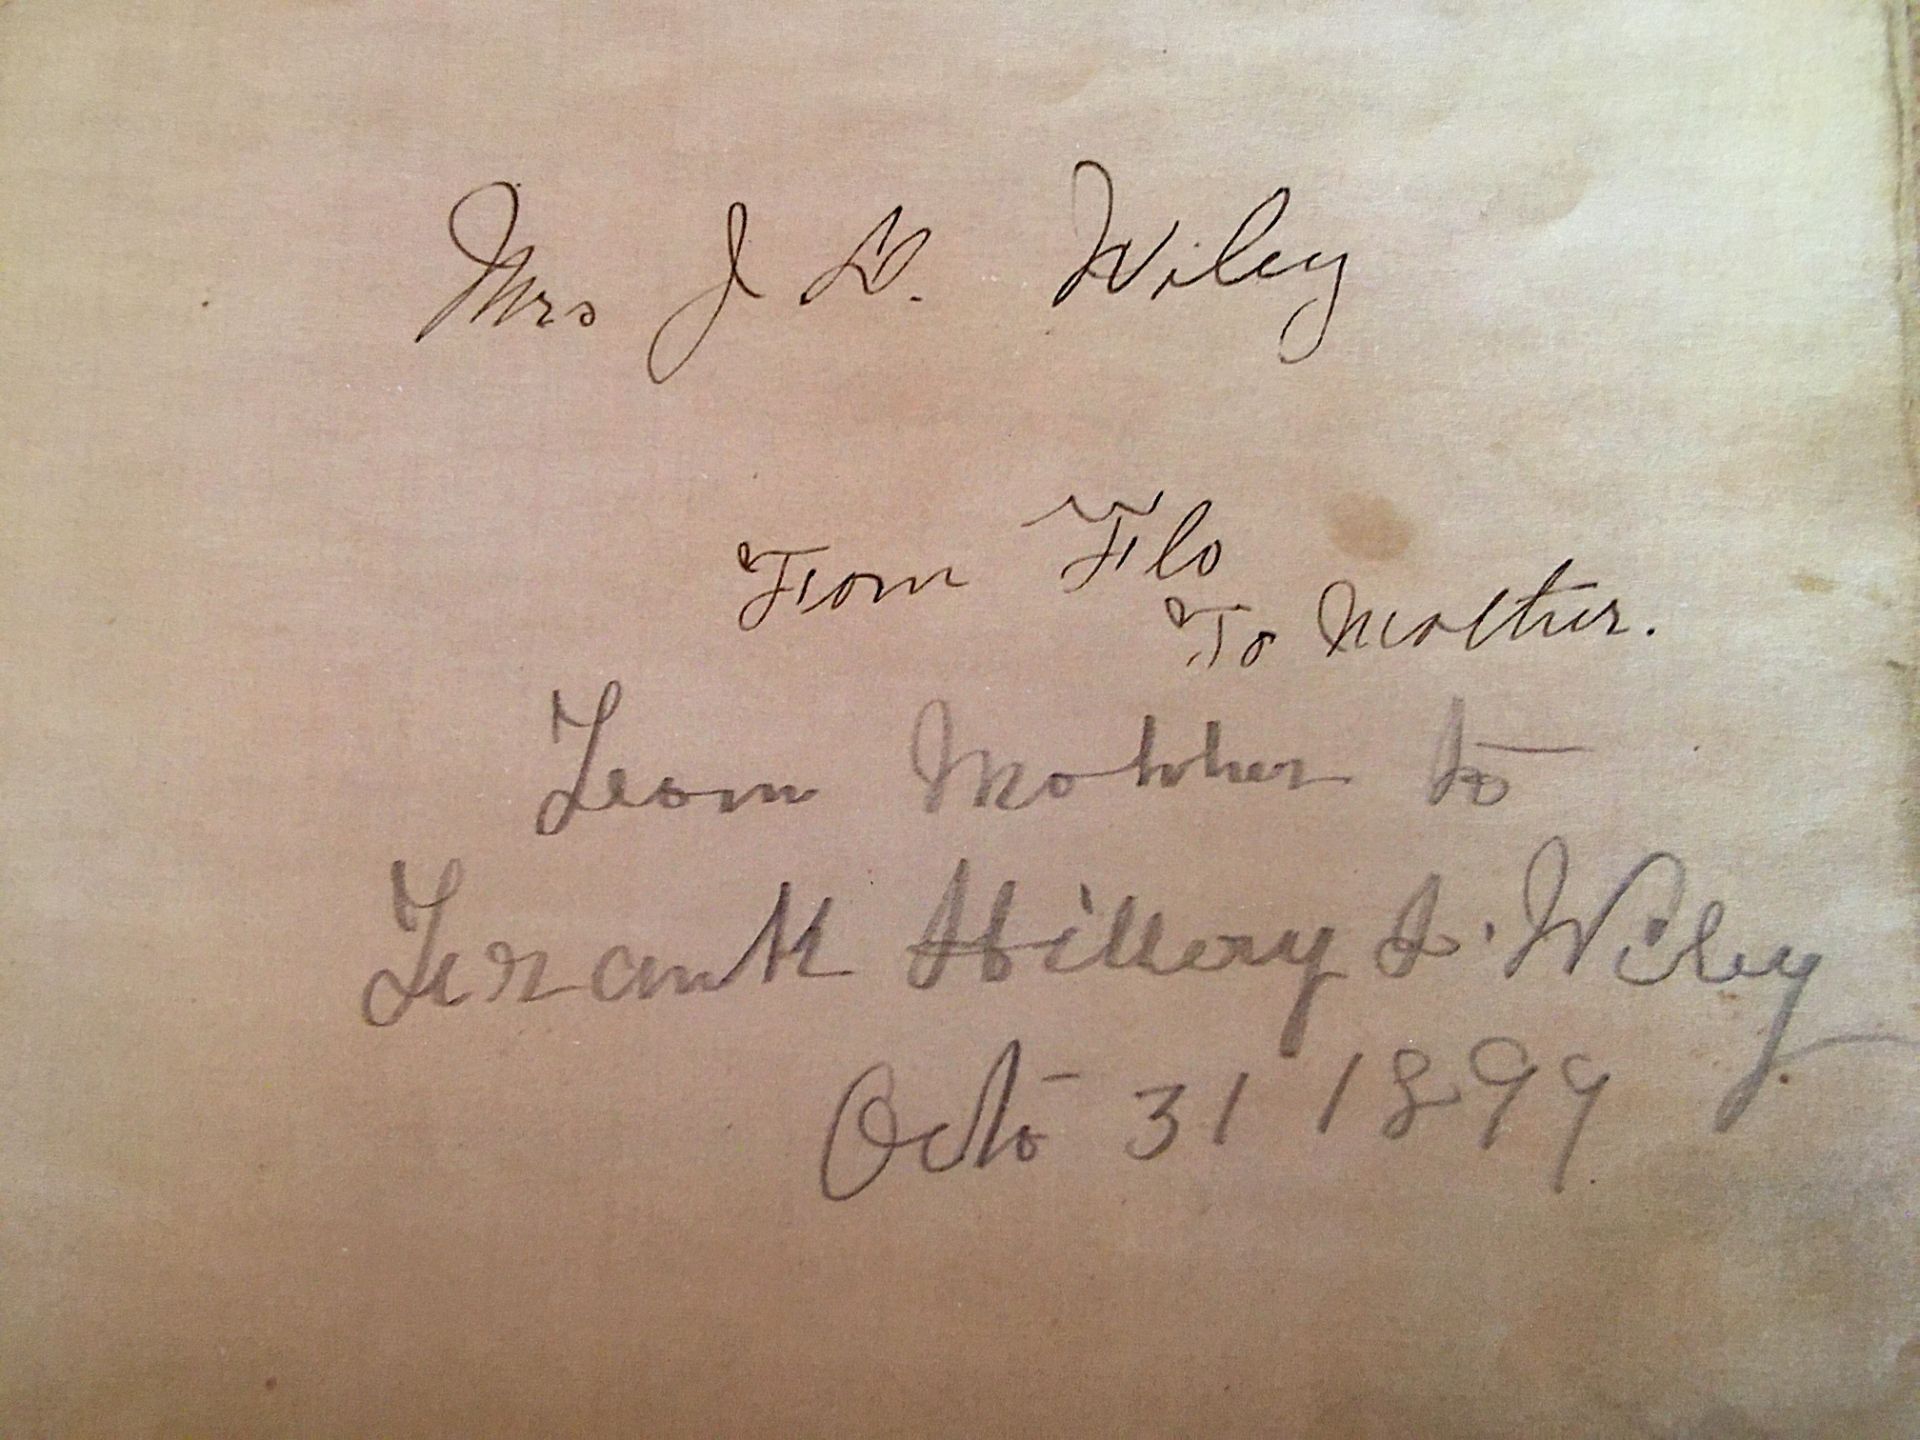 Mrs J D. Wiley
From Flo
To Mother.
From Mother to
Frank Hillery D. Wiley
Octo 31 1899